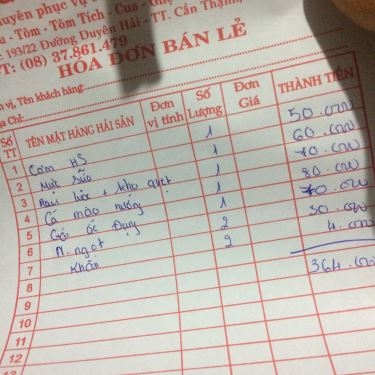 huyên phục vụ
u - Tôm - Tôm Tích - Cua - Ghẹ
: 193/22 Đường Duyên Hải - TT. Cần Thạnh,
T: (08) 37.861.479
HÓA ĐƠN BÁN LẺ
n vị, Tên khách hàng:
ịa chỉ:
Số TT TÊN MẶT HÀNG HẢI SẢN Đơn vị tính Số Lượng Đơn Giá THÀNH TIỀN
1 Cơm HS 1 50.000
2 Mực sữa 1 60.000
3 Rau luộc + kho quẹt 1 70.000
4 Cá mào nướng 1 80.000
5 Gỏi ốc Đụng 1 70.000
6 N. ngọt 2 30.000
7 Khăn 2 4.000
8 364.000
9
10
11
12
13